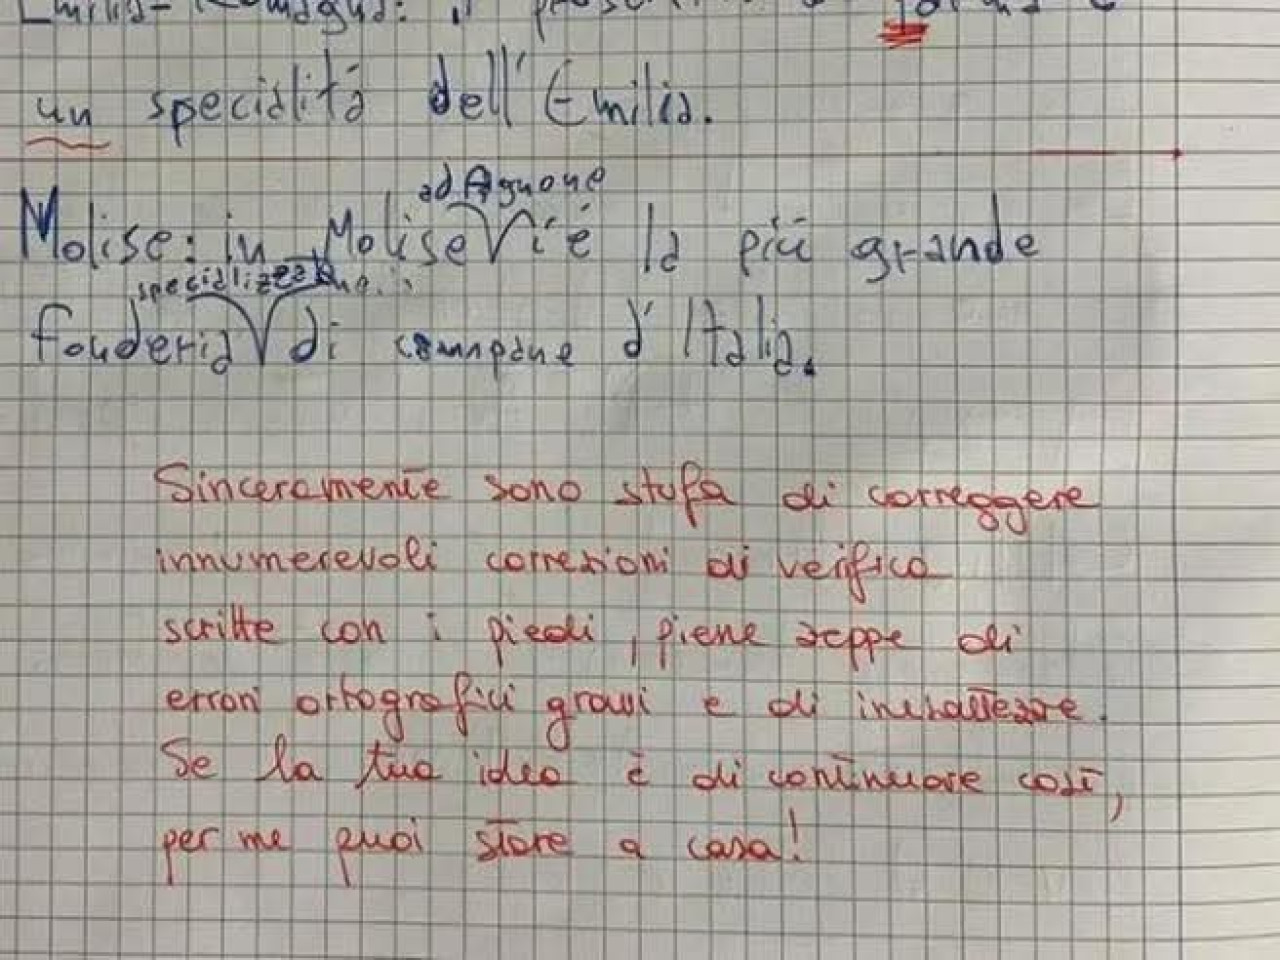 Emilia-Romagna: il
un specialità dell'Emilia.
ad Agnone
Molise: in Molise V'è la più grande
fonderia di campane d'Italia.
Sinceramente sono stufa di correggere
innumerevoli correzioni di verifica
scritte con i piedi, piene zeppe di
errori ortografici gravi e di inesattezze.
Se la tua idea è di continuare così,
per me puoi stare a casa!